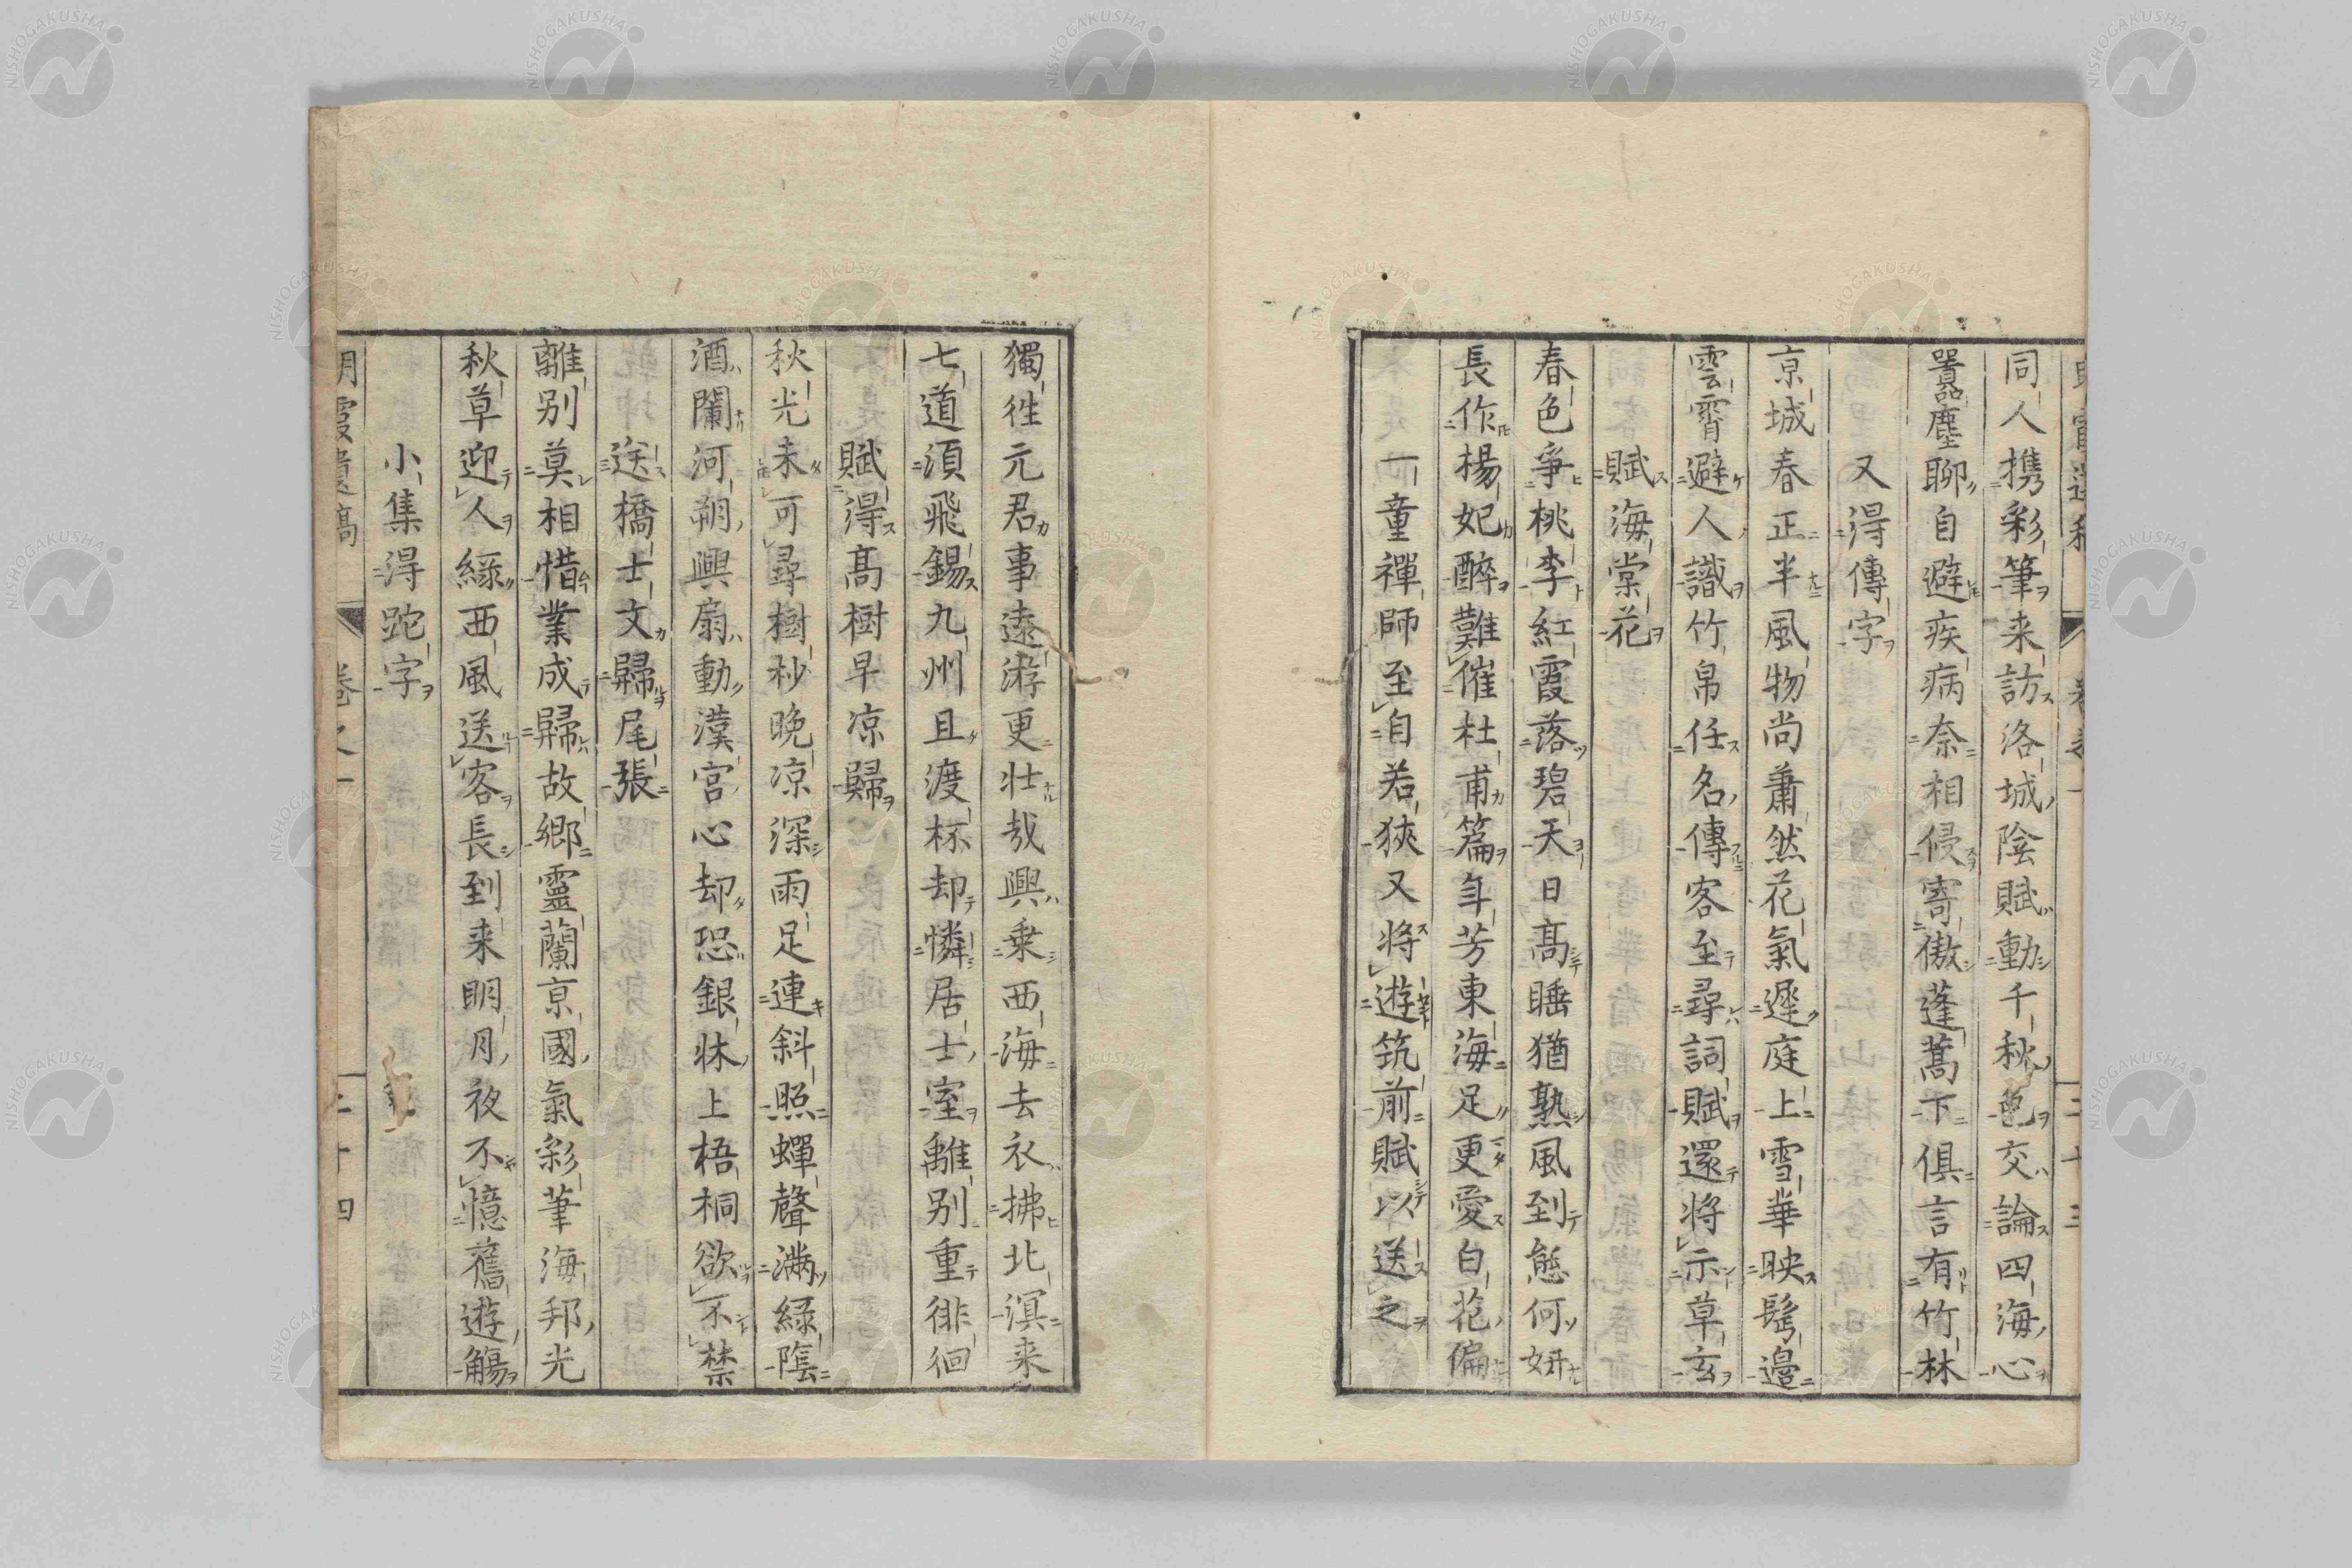 同人携彩筆来訪洛城陰賦動千秋色交論四海心
囂塵聊自避疾病奈相侵寄傲蓬蒿下俱言有竹林
又得傳字
京城春正半風物尚蕭然花氣遲庭上雪華映髩邉
雲霄避人識竹帛任名傳客至尋詞賦還將示草玄
賦海棠花
春色爭桃李紅霞落碧天日高睡猶熟風到態何妍
長作楊妃醉難催杜甫篇年芳東海足更愛白花偏
一童禪師至自若狹又將遊筑前賦以送之
獨徃元君事遠游更壮哉興乗西海去衣拂北溟来
七道須飛錫九州且渡杯却憐居士室離别重徘徊
賦得髙樹早凉歸
秋光未可尋樹杪晩凉深雨足連斜照蟬聲滿緑隂
酒闌河朔興扇動漢宮心却恐銀牀上梧桐欲不禁
送橋士文歸尾張
離别莫相惜業成歸故鄉靈蘭京國氣彩筆海邦光
秋草迎人緑西風送客長到来明月夜不憶舊遊觴
小集得跎字
明霞遺稿 卷之一 二十四